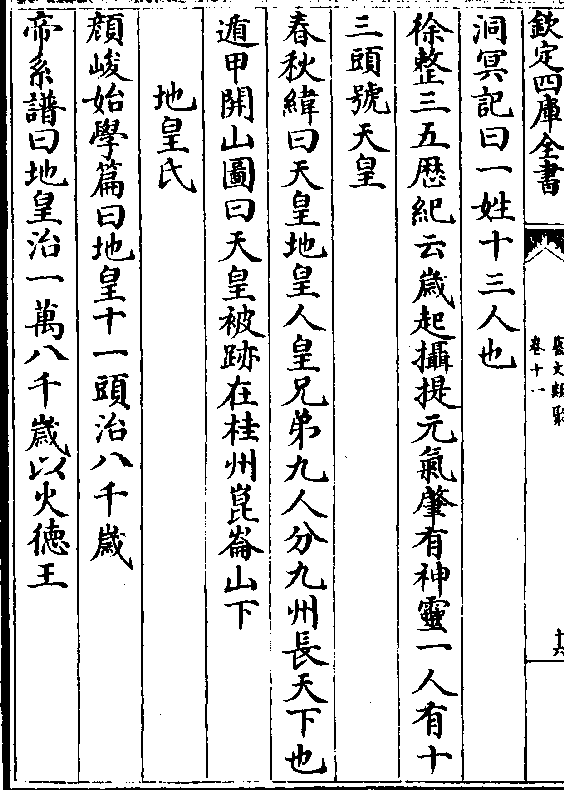 欽定四庫全書
藝文類聚
卷十一
十六
洞冥記曰一姓十三人也
徐整三五厯紀云歲起攝提元氣肇有神靈一人有十
三頭號天皇
春秋緯曰天皇地皇人皇兄弟九人分九州長天下也
遁甲開山圖曰天皇被跡在桂州崑崙山下
地皇氏
顔峻始學篇曰地皇十一頭治八千歲
帝系譜曰地皇治一萬八千歲以火徳王